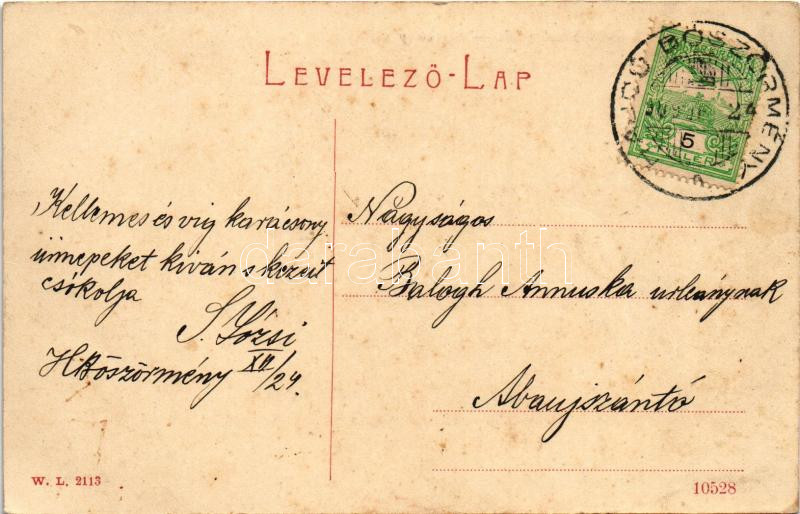 LEVELEZŐ-LAP
BÖSZÖRMÉNY
24
5
FILLÉR
Kellemes és vig karácsony
ünnepeket kiván s kezeit
csókolja
S. Józsi
H.Böszörmény XII/24.
Nagyságos
Balogh Annuska urleánynak
Abaujszántó
darabanth
W. L. 2113
10528